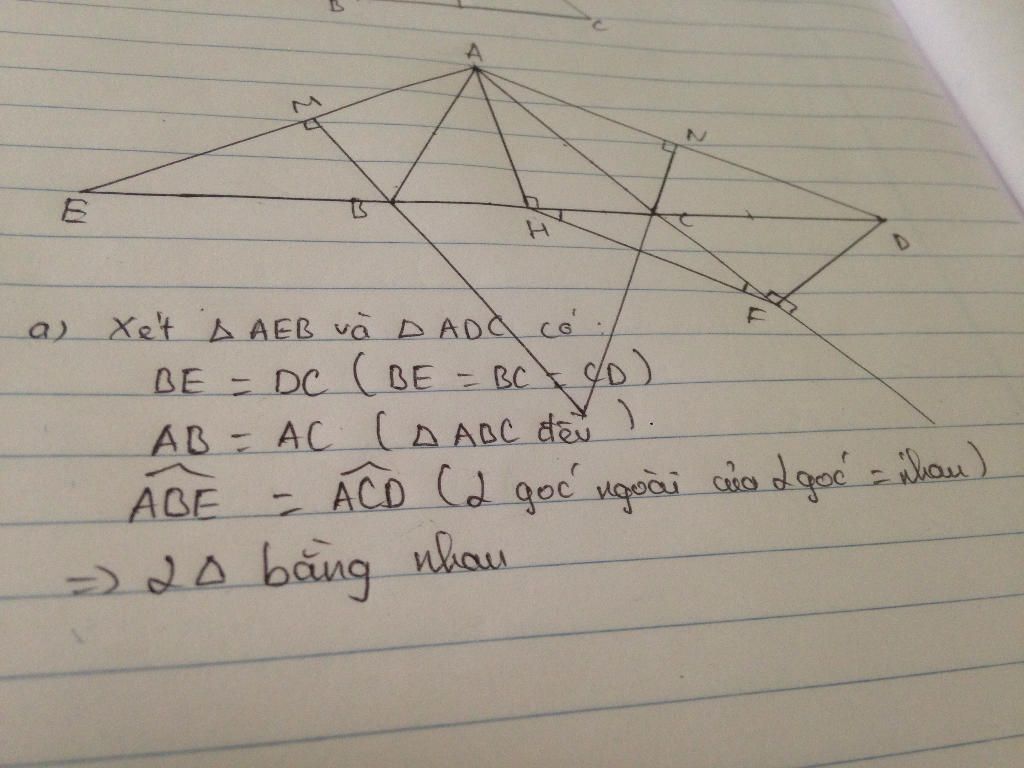 B
C
A
M
N
E
B
H
C
D
F
a) Xét Δ AEB và Δ ADC có :
BE = DC ( BE = BC = CD )
AB = AC ( Δ ABC đều ) .
ABE = ACD ( 2 góc ngoài của 2 góc = nhau )
=> 2 Δ bằng nhau